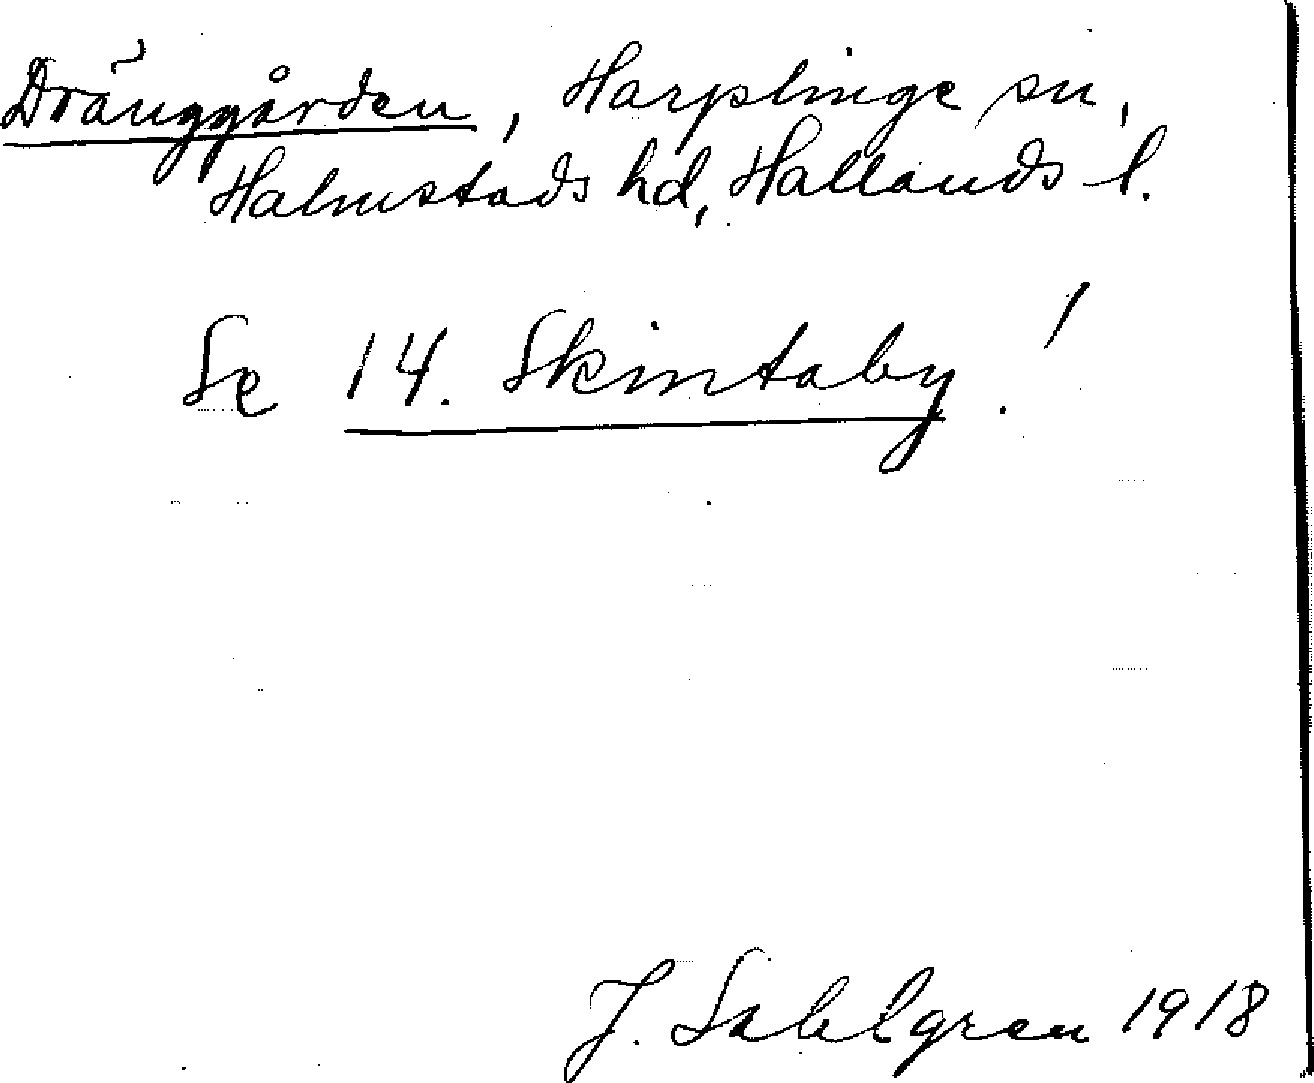 Dränggården, Harplinge sn,
Halmstads hd, Hallands l.
Se 14. Skintaby!
J. Sahlgren 1918